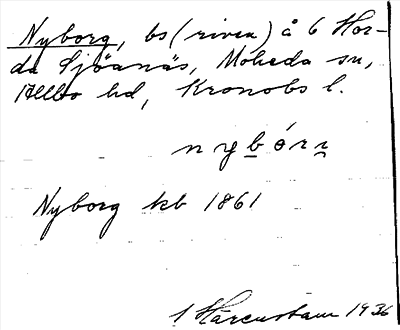 Nyborg, bs (riven) å 6 Hor-
da Sjöanäs, Moheda sn,
Allbo hd, Kronobs l.
nybórı
Nyborg kb 1861
1936